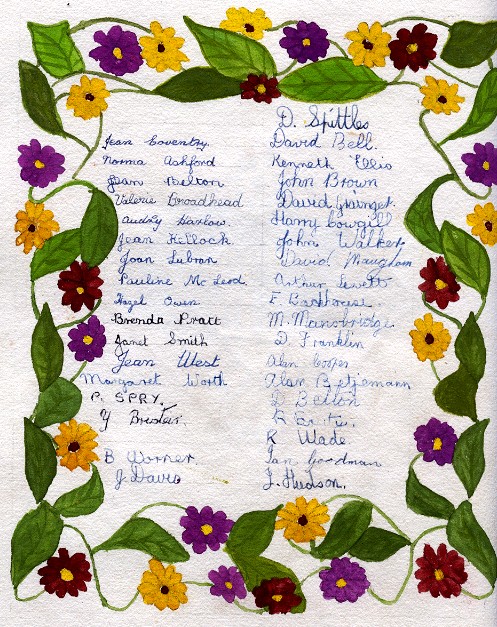 Jean Coventry.
Norma Ashford
Jean Belton
Valerie Broadhead
Audrey Harlow.
Jean Kellock.
Joan Lubran.
Pauline Mc Leod.
Hazel Owen
Brenda Pratt
Janet Smith
Jean West
Margaret Worth
P. SPRY.
Y
B Worner.
J. Davis
D. Spittles
David Bell.
Kenneth Ellis
John Brown
David Grainger.
Harry Cowgill
John Walker.
David Maugham
Arthur Levett
F. Backhouse.
M. Mansbridge.
D. Franklin
Alan Cooper
Alan Betjemann
D Belton
R
R Wade
Ian Goodman
J. Hudson.